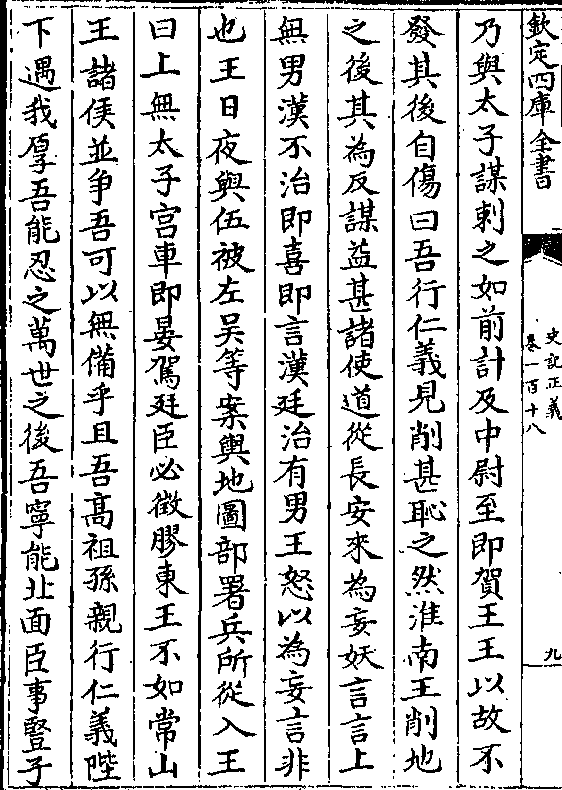 欽定四庫全書
史記正義
卷一百十八
九
乃與太子謀刺之如前計及中尉至即賀王王以故不
發其後自傷曰吾行仁義見削甚恥之然淮南王削地
之後其為反謀益甚諸使道從長安來為妄妖言言上
無男漢不治即喜即言漢廷治有男王怒以為妄言非
也王日夜與伍被左吴等案輿地圖部署兵所從入王
曰上無太子宫車即晏駕廷臣必徴膠東王不如常山
王諸侯並争吾可以無備乎且吾髙祖孫親行仁義陛
下遇我厚吾能忍之萬世之後吾寧能北面臣事豎子